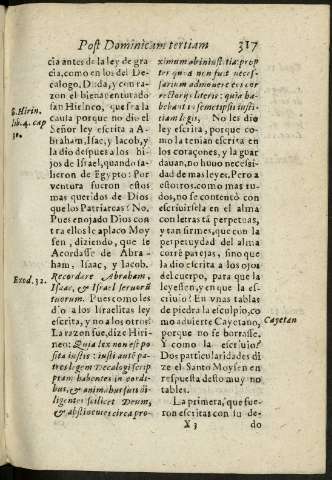 Post Dominicam tertiam 317
cia antes de la ley de gra
cia, como en los del De
calogo. Duda, y con ra-
zon el bienauenturado
san Hirinco, que fra la
causa porque no dio el
Señor ley escrita a A-
braham, Isac, y Iacob, y
la dio despues a los hi-
jos de Israel, quando sa-
lieron de Egypto: Por
ventura fueron estos
mas queridos de Dios
que los Patriarcas? No.
Pues enojado Dios con
tra ellos le aplaco Moy
sen, diziendo, que se
Acordasse de Abra-
ham, Isaac, y Iacob.
Recordare Abraham,
Isaac, & Israel seruorũ
tuorum. Pues como les
dio a los Israelitas ley
escrita, y no a los otros?
La razon fue, dize Hiri-
neo: Quia lex non est po
sita iustis: iusti autẽ pa-
tres legem Decalogi scrip
tam habentes in cordi-
bus, & animabus suis di-
ligentes scilicet Deum,
& abstinentes circa pro-
S. Hirin.
lib. 4. cap
30.
Exod. 32.
ximum ab iniustitia: prop
ter quod non fuit neces-
sarium admoueri eos cor
rectorijs literis: quia ha-
bebant in semetipsis iusti-
tiam legis. No les dio
ley escrita, porque co-
mo la tenian escrita en
los coraçones, y la guar
dauan, no huuo necessi-
dad de mas leyes. Pero a
estotros, como mas ru-
dos, no se contentò con
escriuirsela en el alma
con letras tã perpetuas,
y tan firmes, que con la
perpetuydad del alma
corrẽ parejas, sino que
la dio escrita a los ojos
del cuerpo, para que la
leyessen, y en que la es-
criuio? En vnas tablas
de piedra la esculpio, co
mo aduierte Cayetano,
porque no se borrasse.
Y como la escriuio?
Dos particularidades di
ze el Santo Moysen en
respuesta desto muy no
tables.
La primera, que fue-
ron escritas con su de-
Cayetan
X 3 do